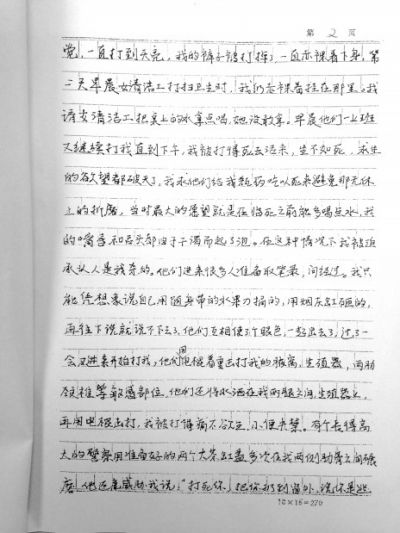 第 2 页
觉,一直打到天亮,我的裤子被打掉了,一直赤裸着下身,第
二天早晨女清洁工打扫卫生时,我仍赤裸着挂在那里。我
请女清洁工把桌上的水拿点喝,她没敢拿。早晨他们一上班
又继续打我直到下午,我被打得死去活来,生不如死,求生
的欲望都破灭了,我求他们给我颗药吃以死来避免那无休
止的折磨,当时最大的愿望就是在临死之前能多喝点水,我
的嘴唇和舌头都由于干渴而起了泡。在这种情况下我被迫
承认人是我杀的。他们进来很多人准备取笔录,问经过。我只
能凭想象说自己用随身带的水果刀捅的,用烟灰缸砸的,
再往下说就说不下去了,他们互相使了个眼色,一起出去了,过了一
会又进来开始打我,他们用电棍着重击打我的裤裆,生殖器,两肋
颈椎等敏感部位,他们还将水洒在我两腿之间,生殖器上,
再用电棍击打,我被打得痛不欲生,小便失禁。有个长得高
大的警察用准备好的两个大茶缸盖多次在我两侧肋骨之间碾
磨,他还来威胁我说:"打死你,把你扔到窗外,说你是逃
18×15=270